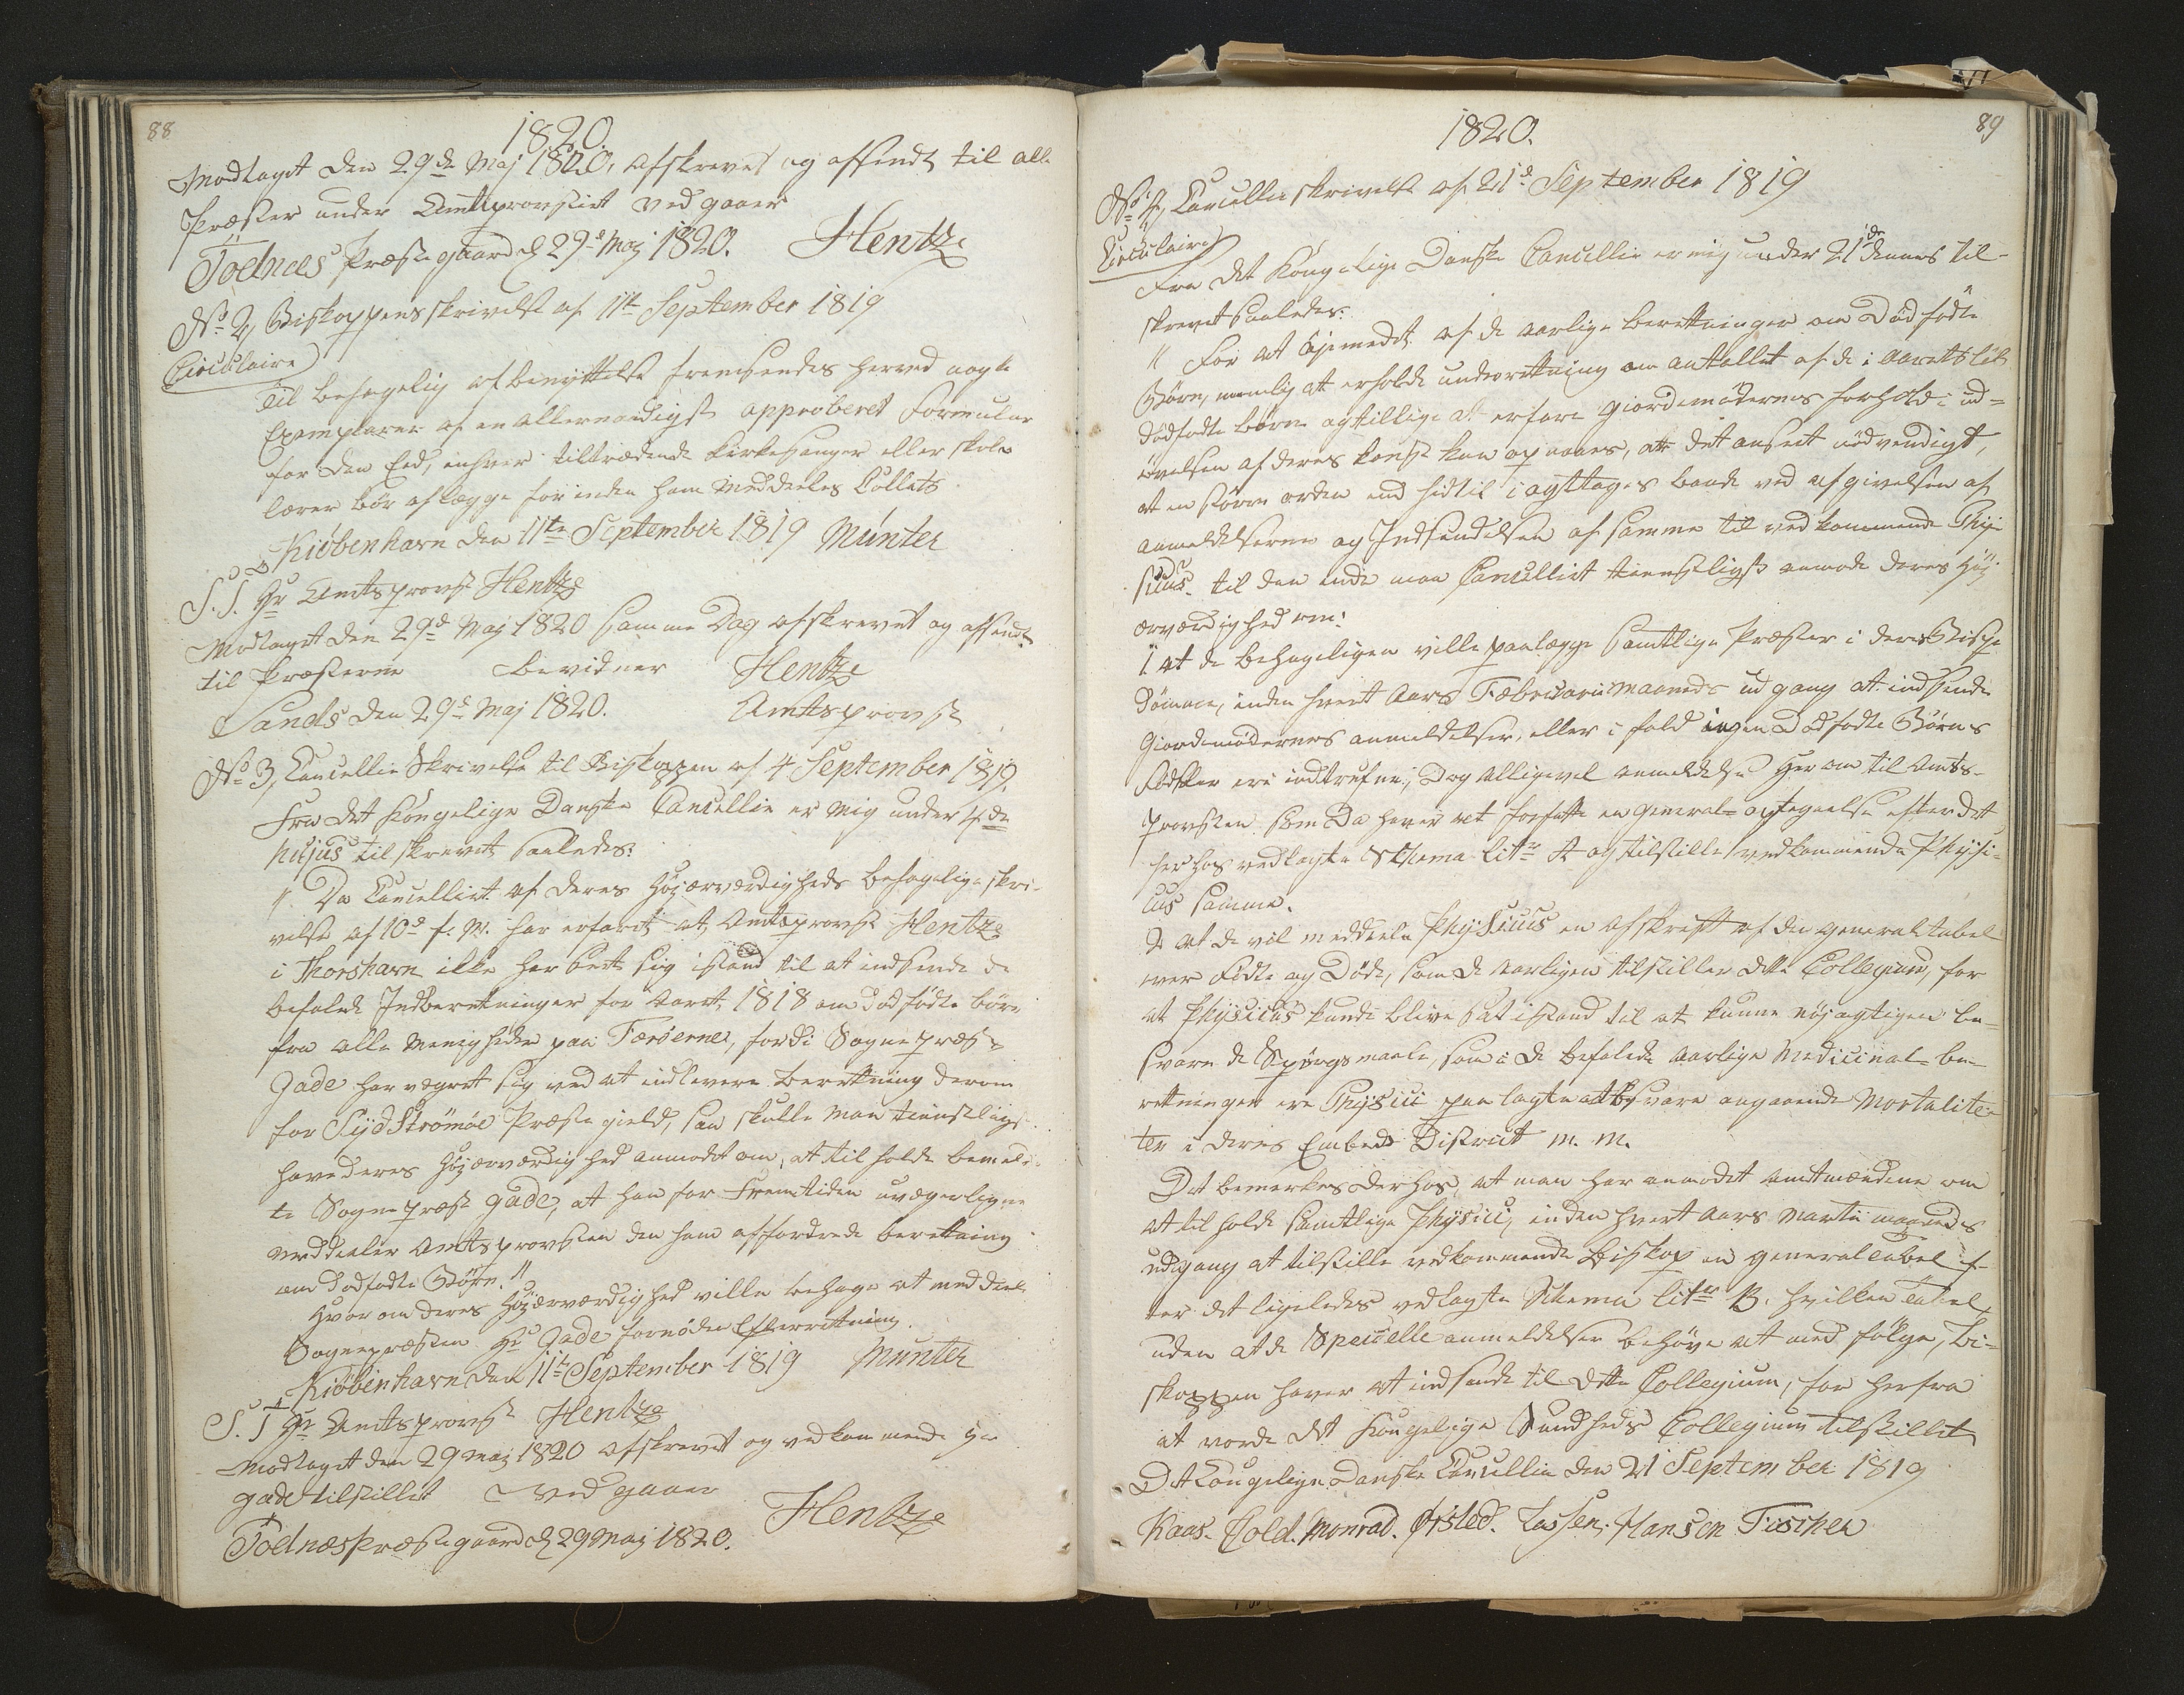 88
1820.
Modtaget den 29de Maj 1820, afskrevet og afsendt til alle
Præster under Amtsprovstiet ved gaaer
Todnæs Præstegaard d 29de Maj 1820. Hentze
No 2, Biskoppens skrivelse af 11te September 1819
Circulaire
Til behagelig afbenyttelse fremsendes herved nogle
Exemplarer af en allernaadigst approberet Formular
for den Eed, enhver tiltrædende Kirkesanger eller skole
lærer bør aflægge forinden ham meddeeles Collats
Kiøbenhavn den 11te September 1819 Münter
S. T. Hr Amtsprovst Hentze
Modtaget den 29de Maj 1820 samme Dag afskrevet og afsendt
til Præsterne bevidner Hentze
Sands den 29de Maj 1820. Amtsprovst
No 3, Cancellie Skrivelse til Biskoppen af 4 September 1819,
Fra det Kongelige Danske Cancellie er mig under 4de
hujus tilskrevet saaledes:
" Da Cancelliet af Deres Højærværdigheds behagelige skri-
velse af 10de f. M. har erfaret at Amtsprovst Hentze
i Thorshavn ikke har seet sig istand til at indsende de
befalede Indberetninger for Aaret 1818 om dødfødte børn
fra alle Menigheder paa Færøerne, fordi Sognepræst
Gade har vægret sig ved at indlevere Beretning derom
for Sydstrømøe Præstegield, saa skulle man tienstligst
have deres Højærværdighed anmodet om, at tilholde bemeld-
te Sognepræst Gade, at han for Fremtiden uvægerligen
meddeeler Amtsprovsten den ham affordrede beretning
om dødfødte Børn."
Hvorom deres Højærværdighed ville behage at meddeele
Sognepræsten Hr Gade fornøden Efterretning.
Kiøbenhavn den 11te September 1819 Münter
S. T Hr Amtsprovst Hentze
Modtaget den 29 Maj 1820 afskrevet og vedkommende Hr
Gade tilstillet ved gaaer
Todnæs Præstegaard d 29 Maj 1820. Hentze
89
1820.
No 4, Cancellie skrivelse af 21de September 1819
Circulaire
Fra det Kongelige Danske Cancellie er mig under 21de dennes til-
skrevet saaledes:
" For at Øjemedet af de aarlige beretninger om Dødfødte
Børn, nemlig at erholde underretning om antallet af de i Aarets løb
dødfødte børn og tillige at erfare Giordemødrenes forhold i ud-
øvelsen af deres konst kan opnaaes, er det anseet nødvendigt,
at en større orden end hidtil iagttages baade ved afgivelsen af
anmeldelserne og Indsendelsen af samme til vedkommende Phy-
sicus. til den ende maa Cancelliet tienstligst anmode deres Høj-
ærværdighed om:
1 at de behageligen ville paalægge samtlige Præster i deres Bispe
dømme, inden hvert Aars Februarii Maaneds udgang at indsende
Giordemødrenes anmeldelser, eller i fald ingen Dødfødte Børns
Fødsler ere indtrufne, dog alligevel anmeldelse herom til Amts-
provsten som da haver at forfatte en general-optegnelse efter det
herhos vedlagte Schema litr A og tilstille vedkommende Physi-
cus samme.
2 at de vil meddeele Physicus en Afskrift af den generaltabel
over Fødte og Døde, som de aarligen tilstiller dette Collegium, for
at Physicus kunde blive sat istand til at kunne nøjagtigen be-
svare de Spørgsmaale, som i de befalede aarlige Medicinal-be-
retninger ere Physici paalagte at besvare angaaende Mortalite-
ten i deres Embeds District m. m.
Det bemærkes derhos, at man har anmodet Amtmændene om
at tilholde samtlige Physici, inden hvert Aars Martii Maaneds
udgang at tilstille vedkommende Biskop en generaltabel ef-
ter det ligeledes vedlagte Schema litr B. hvilken tabel,
uden at de Specielle anmeldelser behøve at med følge, Bi-
skoppen haver at indsende til dette Collegium, for herfra
at vorde det Kongelige Sundheds Collegium tilstillet
Det Kongelige Danske Cancellie den 21 September 1819
Kaas. Cold. Monrad. Ørsted. Lassen. Hansen Fischer